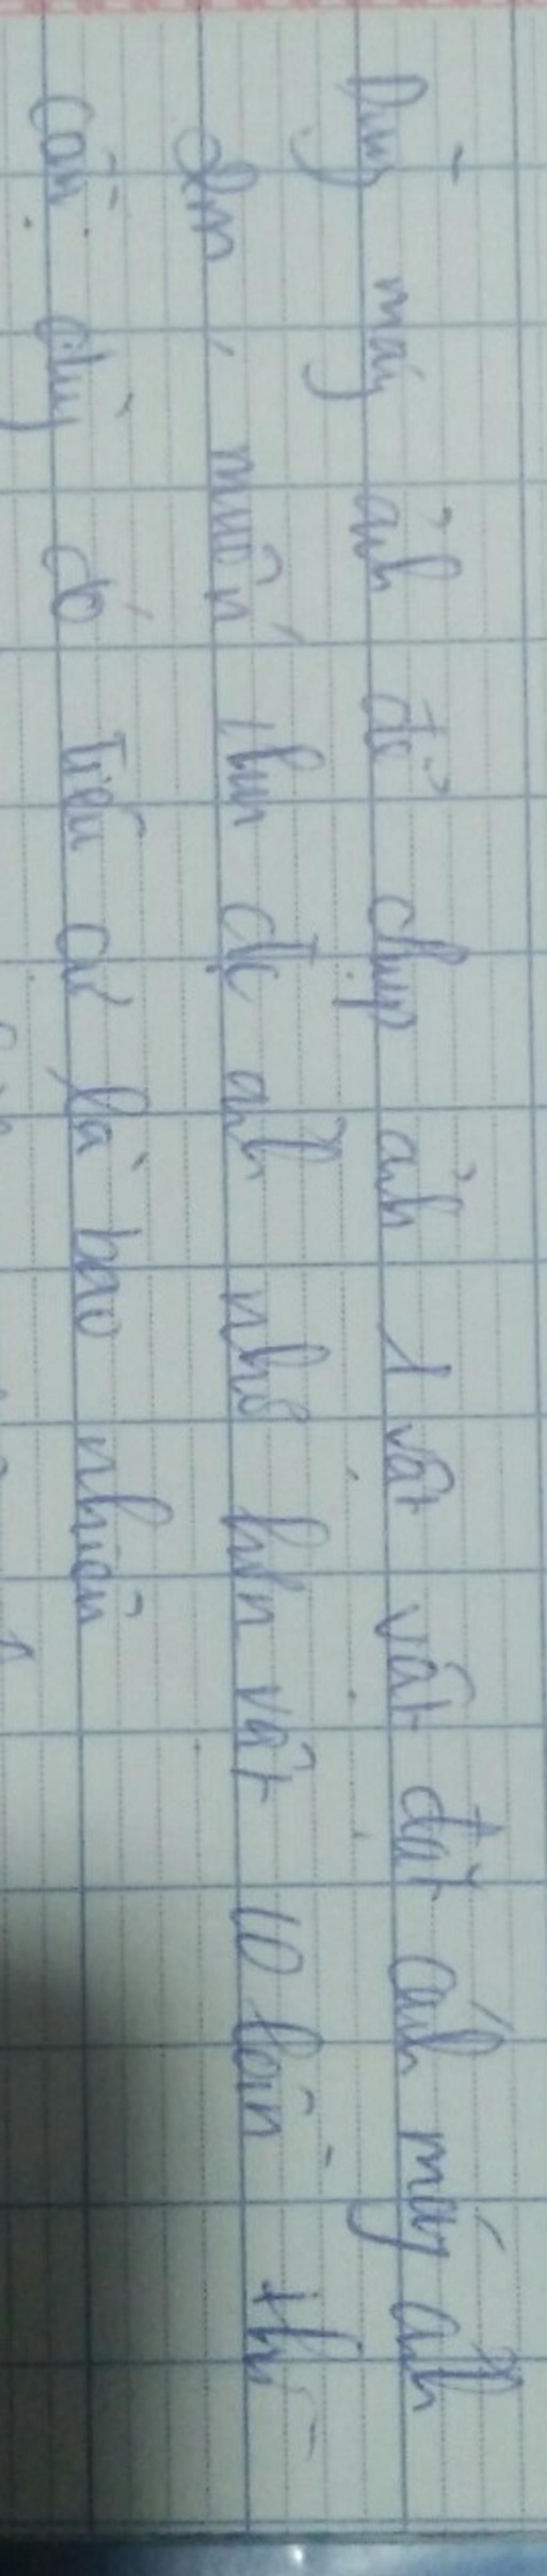 Dùng máy ảnh để chụp ảnh 1 vật vật đặt cách máy ảnh
2m, muốn thu đc ảnh nhỏ hơn vật 10 lần thì
cần dùng có tiêu cự là bao nhiêu